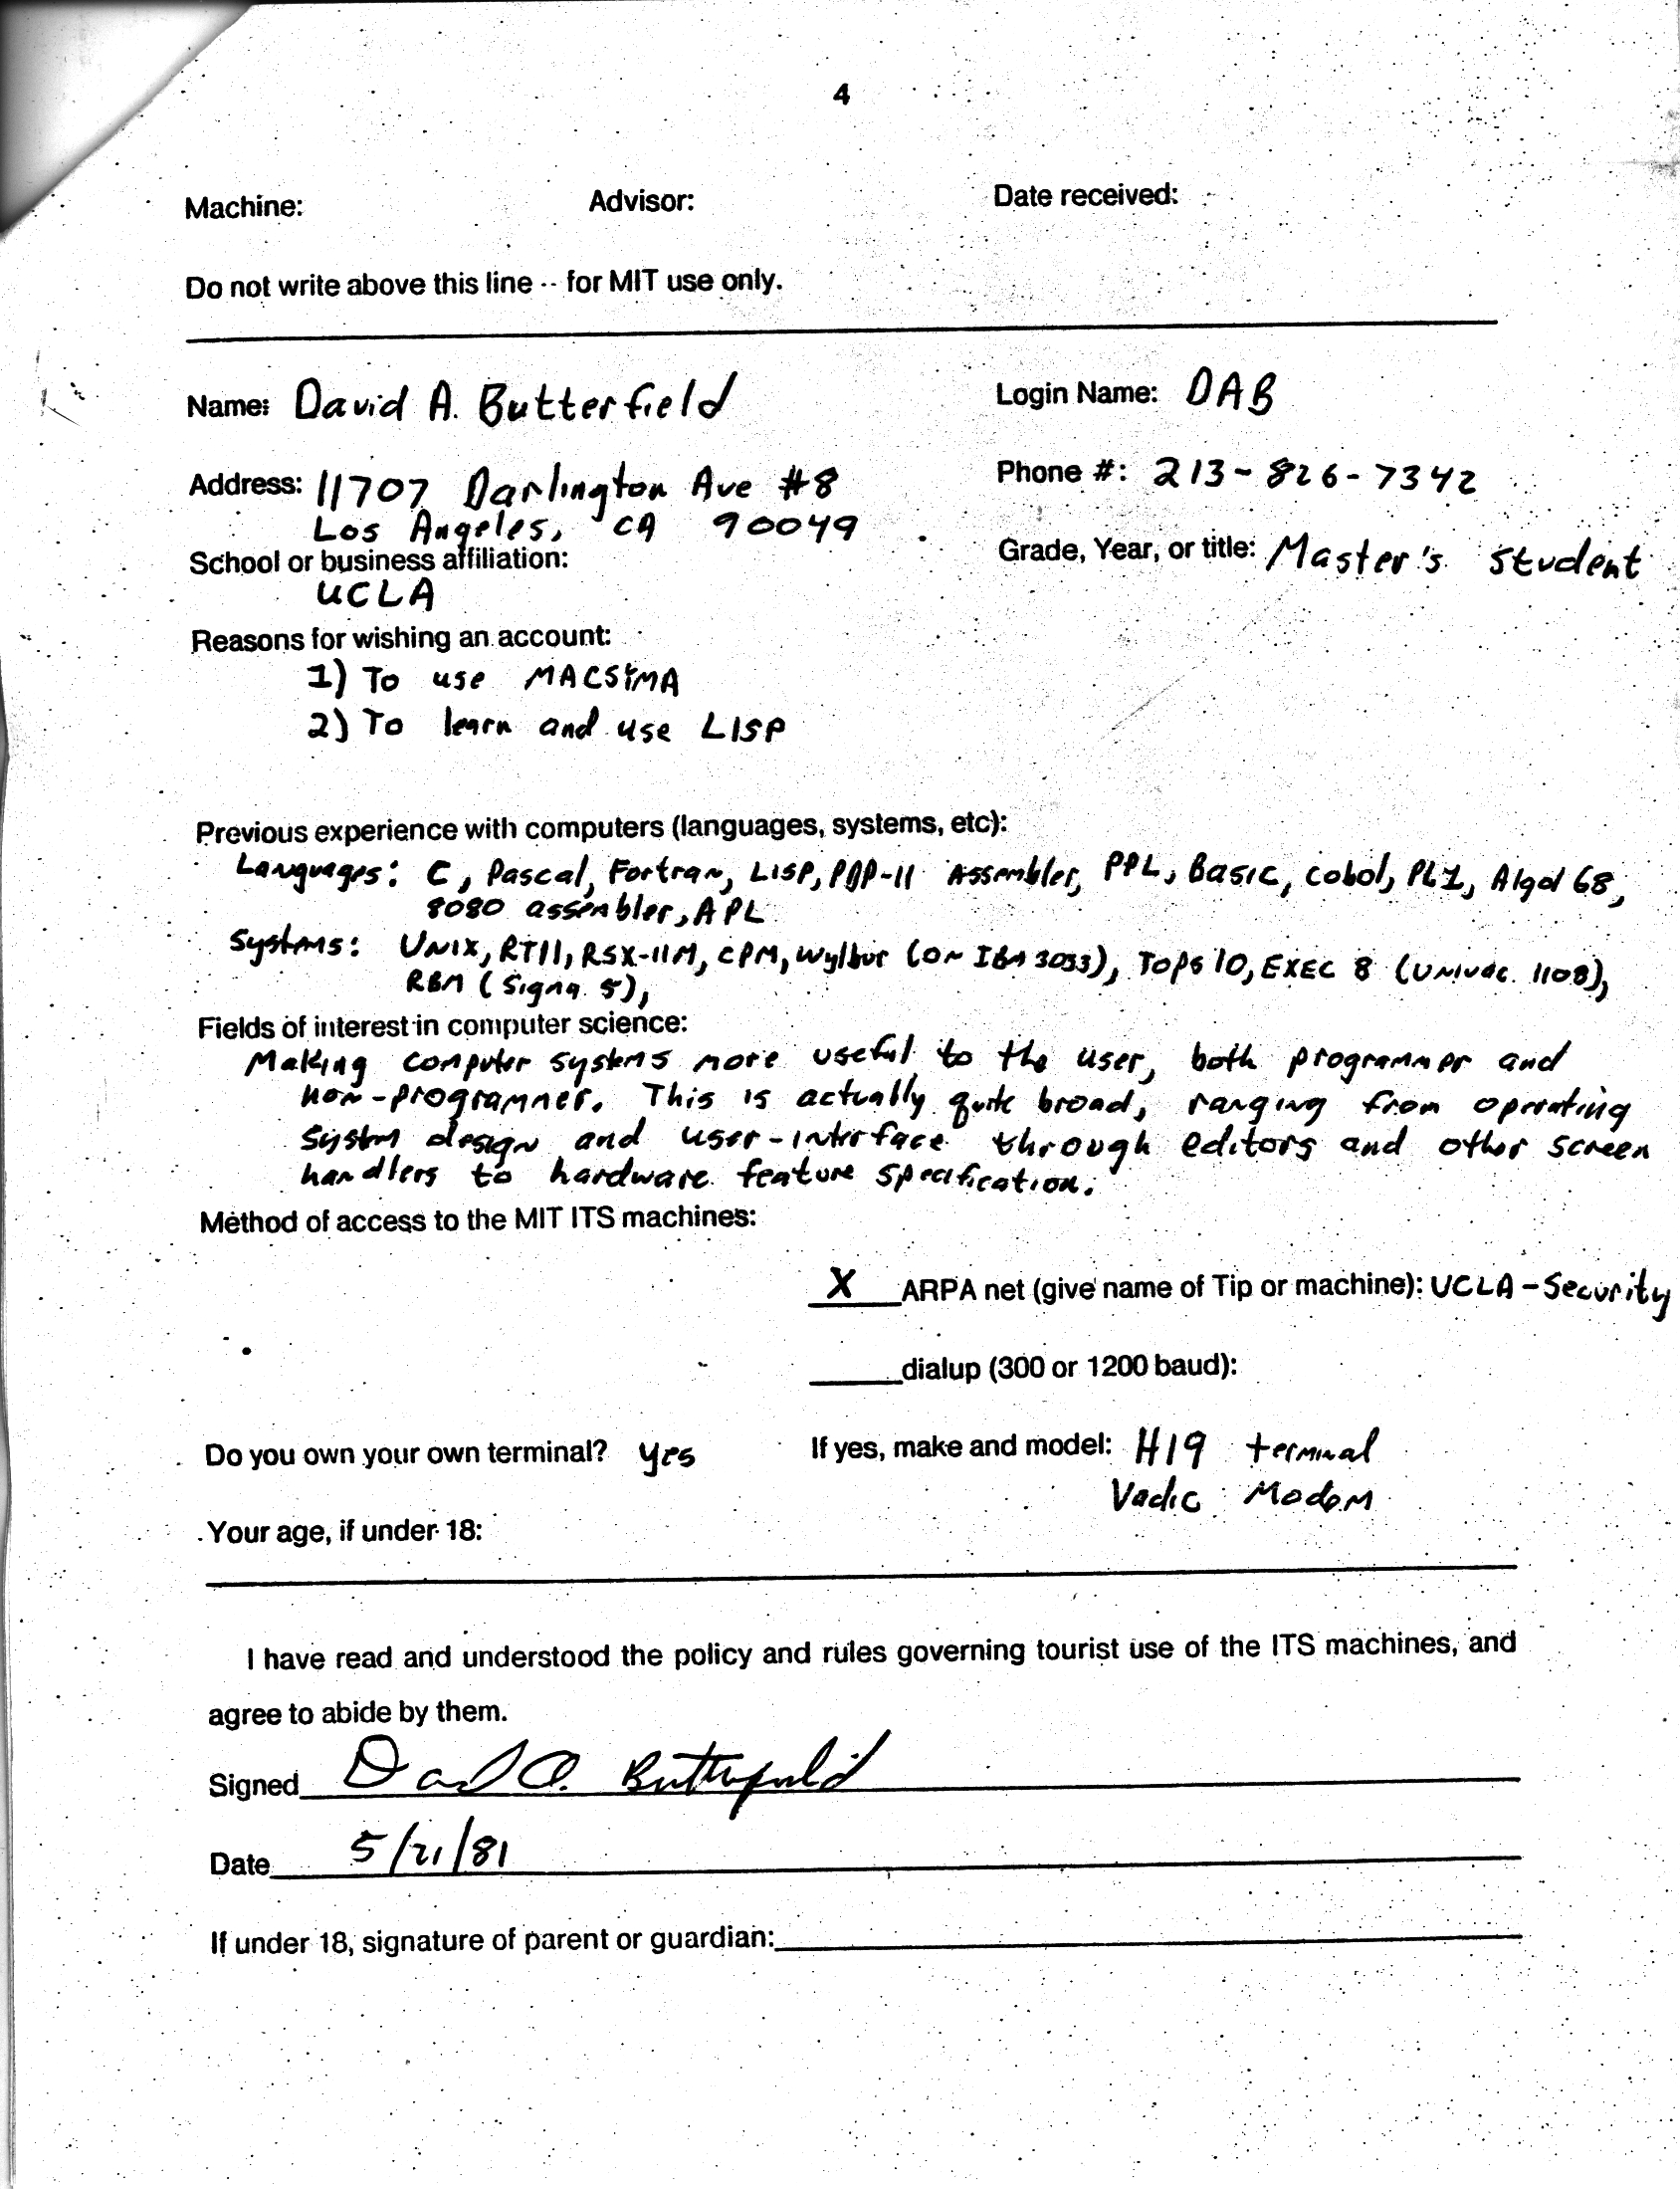 4
Machine: Advisor: Date received:
Do not write above this line -- for MIT use only.
Name: David A. Butterfield Login Name: DAB
Address: 11707 Darlington Ave #8 Phone #: 213-826-7342
Los Angeles, CA 90049
School or business affiliation: Grade, Year, or title: Master's student
UCLA
Reasons for wishing an account:
1) To use MACSYMA
2) To learn and use LISP
Previous experience with computers (languages, systems, etc):
Languages: C, Pascal, Fortran, LISP, PDP-11 Assembler, PPL, Basic, Cobol, PL1, Algol 68,
8080 assembler, APL
Systems: UNIX, RT11, RSX-11M, CPM, Wylbur (on IBM 3033), Tops 10, EXEC 8 (Univac 1108),
RBM (Sigma 5),
Fields of interest in computer science:
Making computer systems more useful to the user, both programmer and
non-programmer. This is actually quite broad, ranging from operating
system design and user-interface through editors and other screen
handlers to hardware feature specification.
Method of access to the MIT ITS machines:
X ARPA net (give name of Tip or machine): UCLA-Security
dialup (300 or 1200 baud):
Do you own your own terminal? yes If yes, make and model: H19 terminal
Vadic Modem
Your age, if under 18:
I have read and understood the policy and rules governing tourist use of the ITS machines, and
agree to abide by them.
Signed David A. Butterfield
Date 5/21/81
If under 18, signature of parent or guardian: